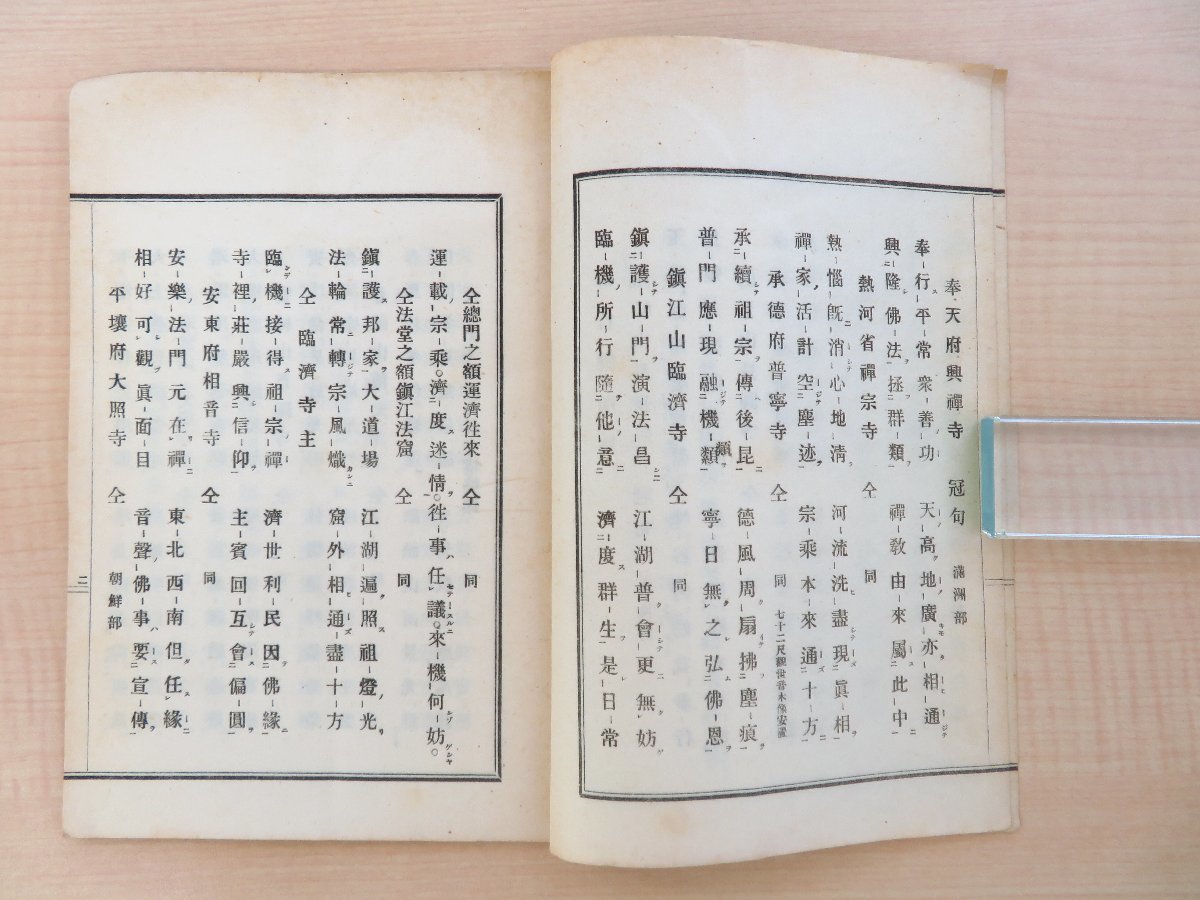 奉天府興禪寺　冠句　滿洲部
奉行平常衆善功　天高地廣亦相通
興隆佛法拯群類　禪教由來屬此中
熱河省禪宗寺　仝　同
熱惱旣消心地淸　河流洗盡現眞相
禪家活計空塵迹　宗乘本來通十方
承德府普寧寺　仝　同　七十二尺觀世音木像安置
承續祖宗傳後昆　德風周扇拂塵痕
普門應現融機類　寧日無之弘佛恩
鎭江山臨濟寺　仝　同
鎭護山門演法昌　江湖普會更無妨
臨機所行隨他意　濟度群生是日常
仝總門之額運濟徃來　仝　同
運載宗乘。濟度迷情。徃事任議。來機何妨。
仝法堂之額鎭江法窟　仝　同
鎭護邦家大道場　江湖遍照祖燈光
法輪常轉宗風熾　窟外相通盡十方
仝臨濟寺主
臨機接得祖宗禪　濟世利民因佛緣
寺裡莊嚴興信仰　主賓回互會偏圓
安東府相音寺　仝　同
安樂法門元在禪　東北西南但任緣
相好可觀眞面目　音聲佛事要宣傳
平壤府大照寺　仝　朝鮮部
二